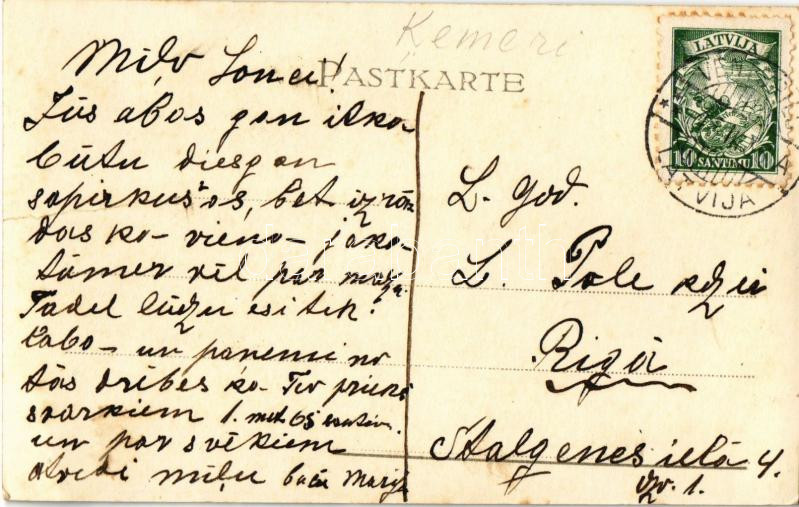 Ķemeri
PASTKARTE
LATVIJA
10 SANTIMU 10
LATVIJA
Mīļo
Jūs abas gan it ka
būtu diesgan
sapirkušos, bet izrā
das ka vieno jāka
tāmer vēl par maz.
Tadel lūdzu esi tik
Labo un paņemi no
tās drēbes ko Tev priekš
svarkiem 1. met 65 centim.
un par svēkiem
atvedi mīļu buču Marija
L. god.
L. Pole kdzei
Rīgā
Stalgenes ielā 4.
dzv. 1.